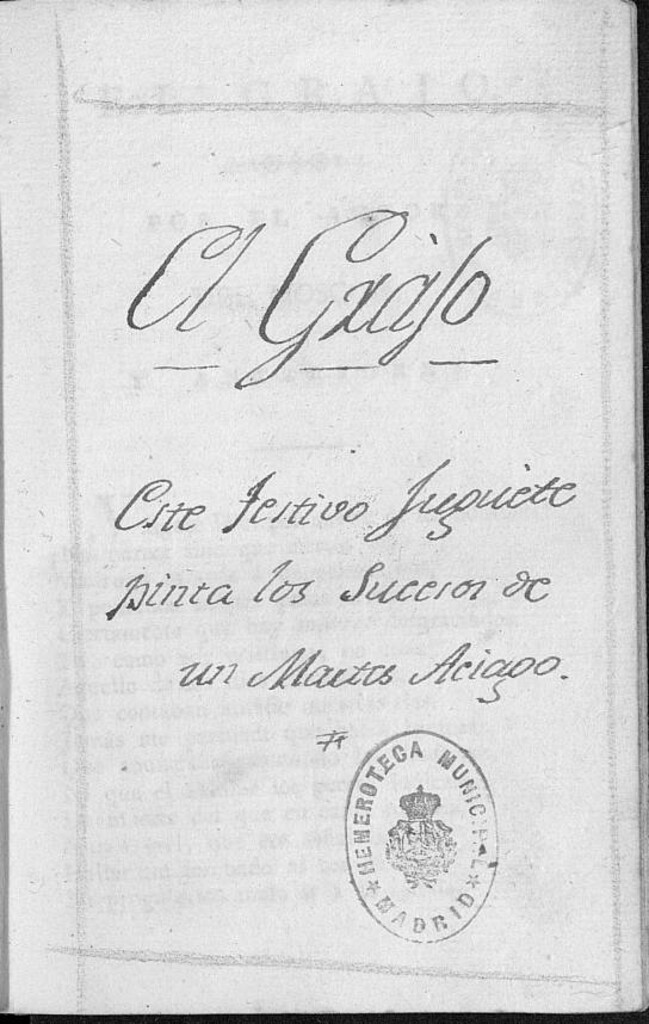 El Grajo
Este festivo Juguete
pinta los Sucesos de
un Martes Aciago.
#
HEMEROTECA MUNICIPAL
★ MADRID ★